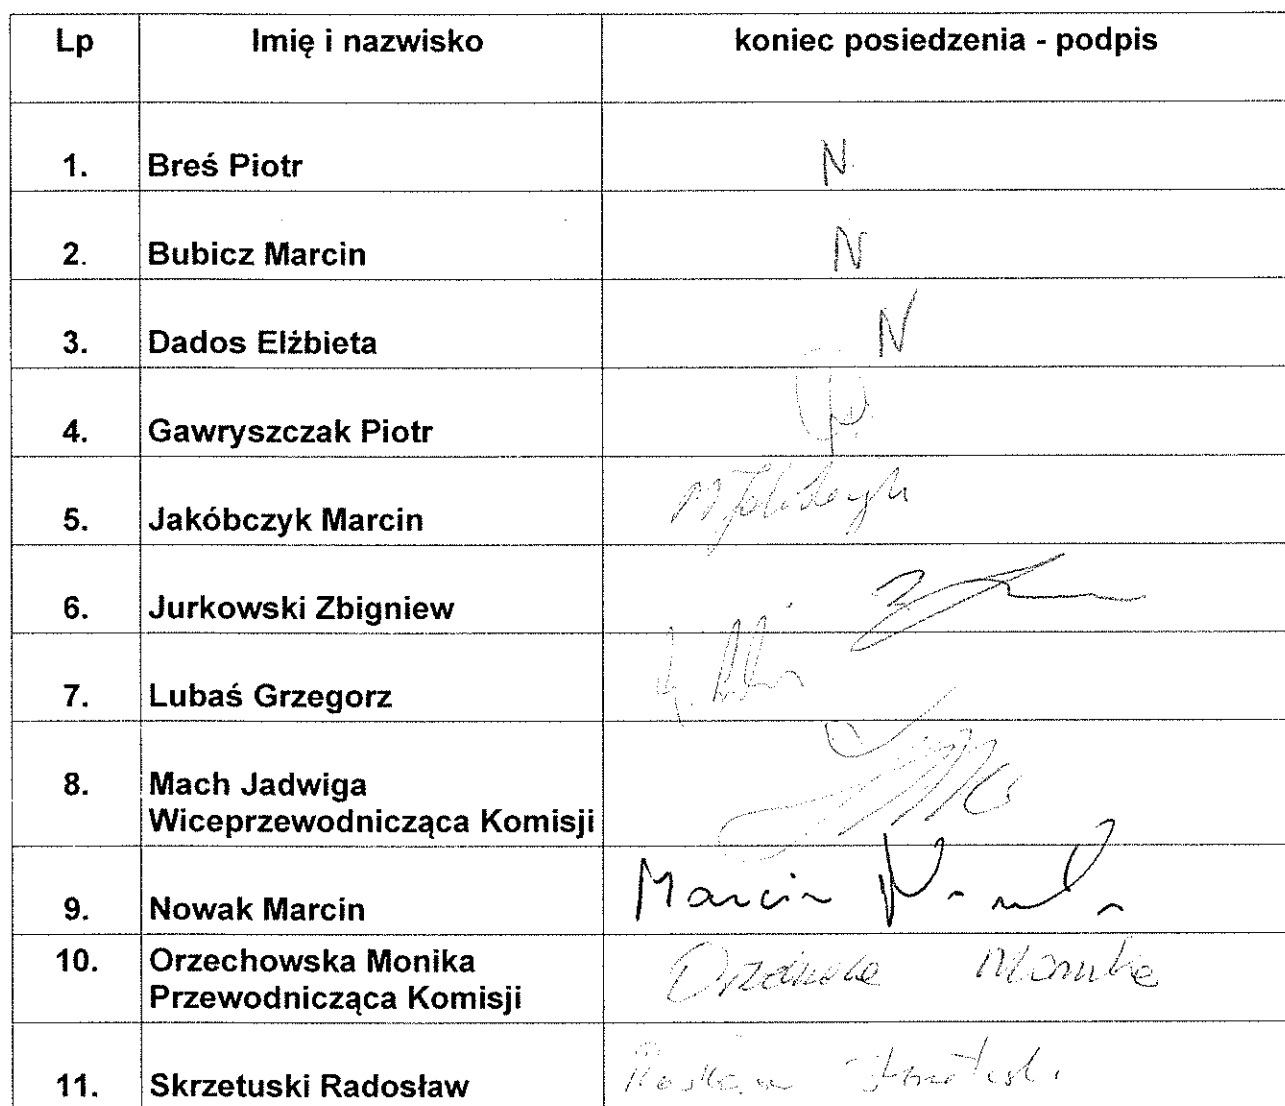 Lp Imię i nazwisko koniec posiedzenia - podpis
1. Breś Piotr N
2. Bubicz Marcin N
3. Dados Elżbieta N
4. Gawryszczak Piotr
5. Jakóbczyk Marcin
6. Jurkowski Zbigniew
7. Lubaś Grzegorz
8. Mach Jadwiga
Wiceprzewodnicząca Komisji
9. Nowak Marcin Marcin
10. Orzechowska Monika Monika
Przewodnicząca Komisji
11. Skrzetuski Radosław